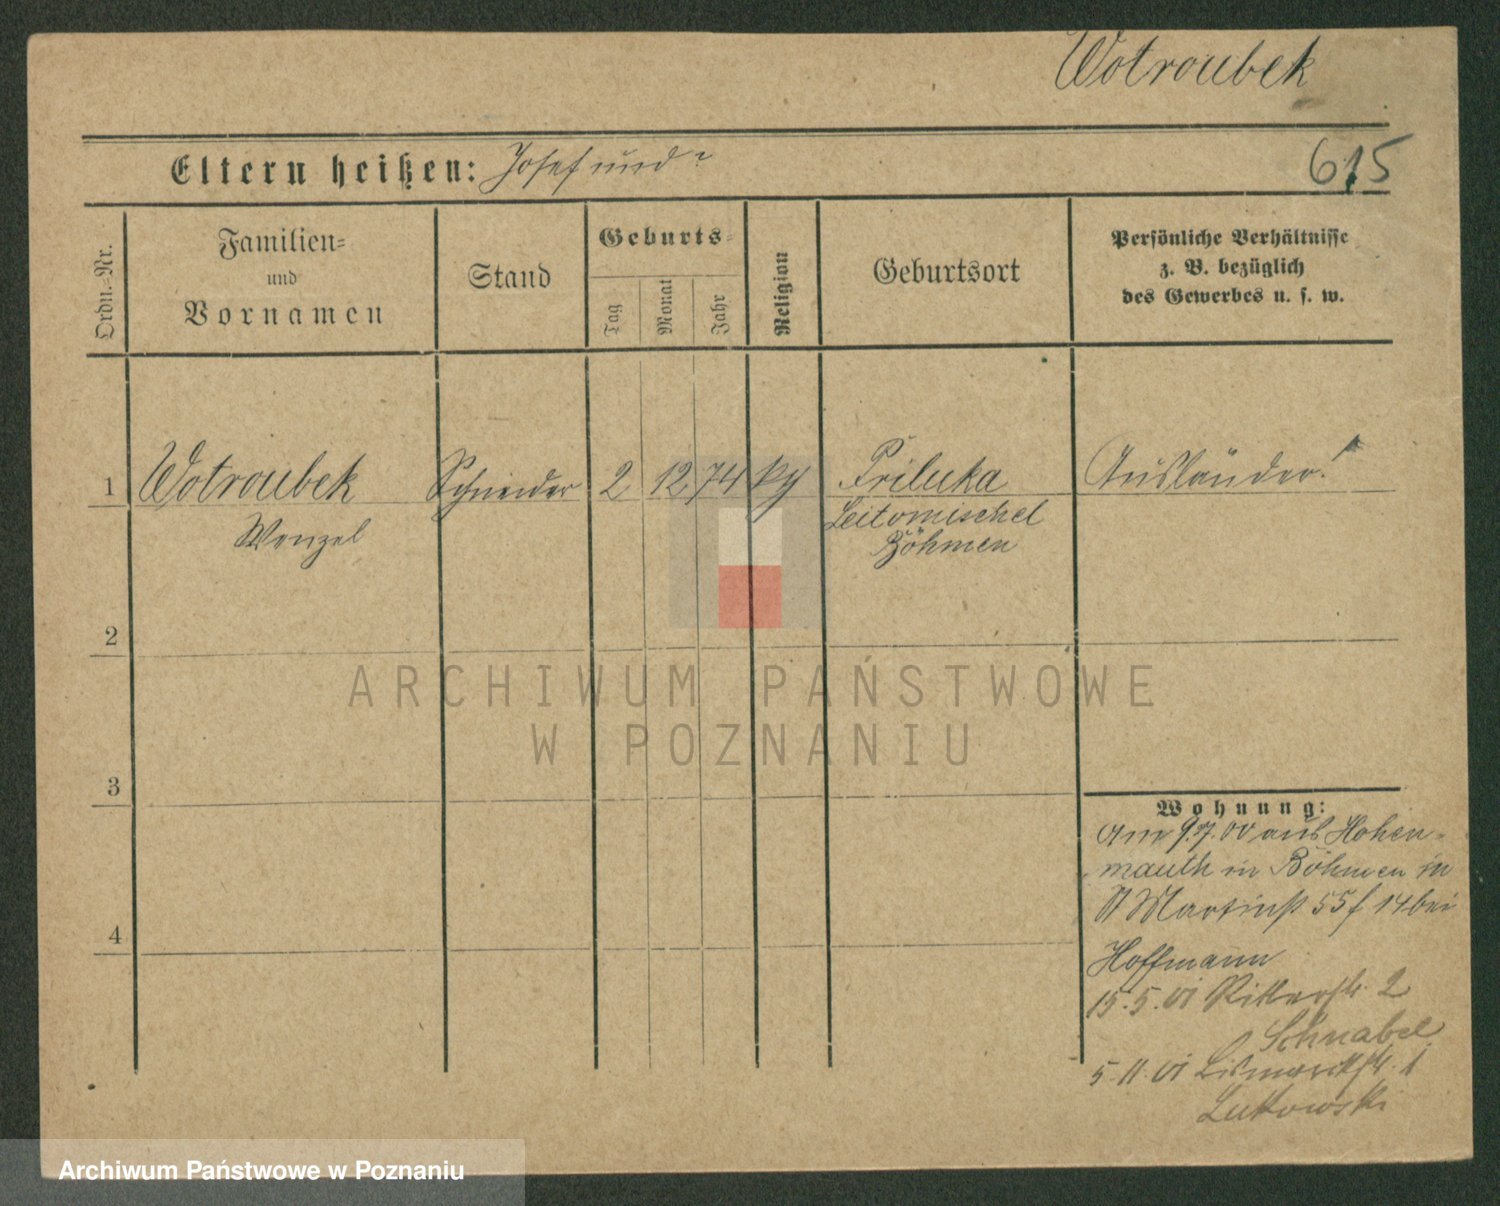 Wotroubek
Eltern heißen: Josef und ?
615
Ordn.=Nr.
Familien=
und
Vornamen
Stand
Geburts=
Tag
Monat
Jahr
Religion
Geburtsort
Persönliche Verhältnisse
z. B. bezüglich
des Gewerbes u. s. w.
1 Wotroubek Schneider 2 12 74 Priluka Ausländer!
Wenzel Leitomischel
Böhmen
2
ARCHIWUM PAŃSTWOWE
W POZNANIU
3
Wohnung:
Am 9.7.00 aus Hohen=
mauth in Böhmen in
St Martinstr 55 f 14 bei
Hoffmann
4
15.5.01 Ritterstr. 2
Schnabel
5.11.01 Bismarckstr. 1
Lutkowski
Archiwum Państwowe w Poznaniu